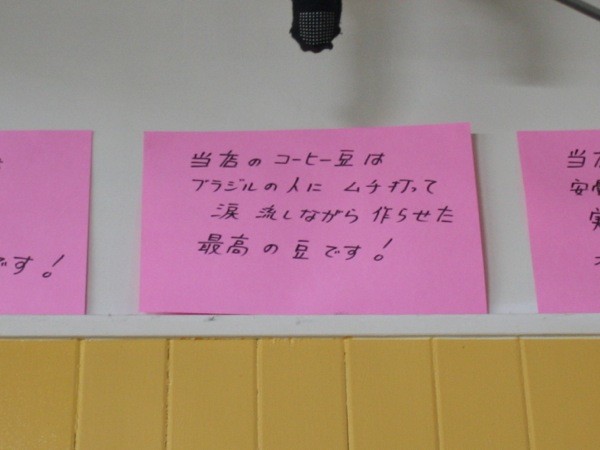 当店のコーヒー豆は
ブラジルの人に ムチ打って
涙 流しながら 作らせた
最高の豆です!
です!
当
安
実